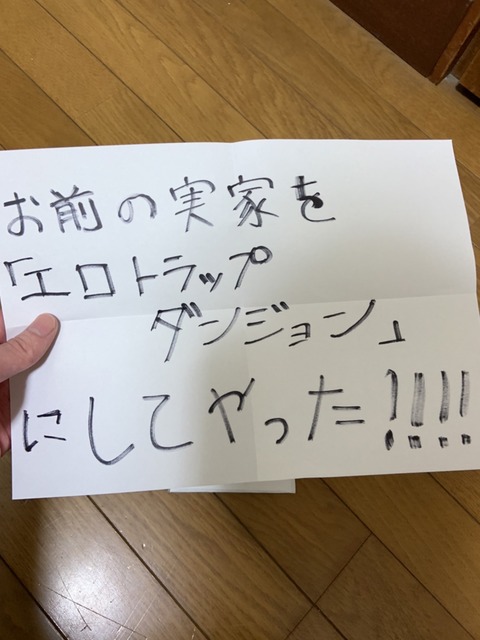 お前の実家を
「エロトラップ
ダンジョン」
にしてやった!!!!